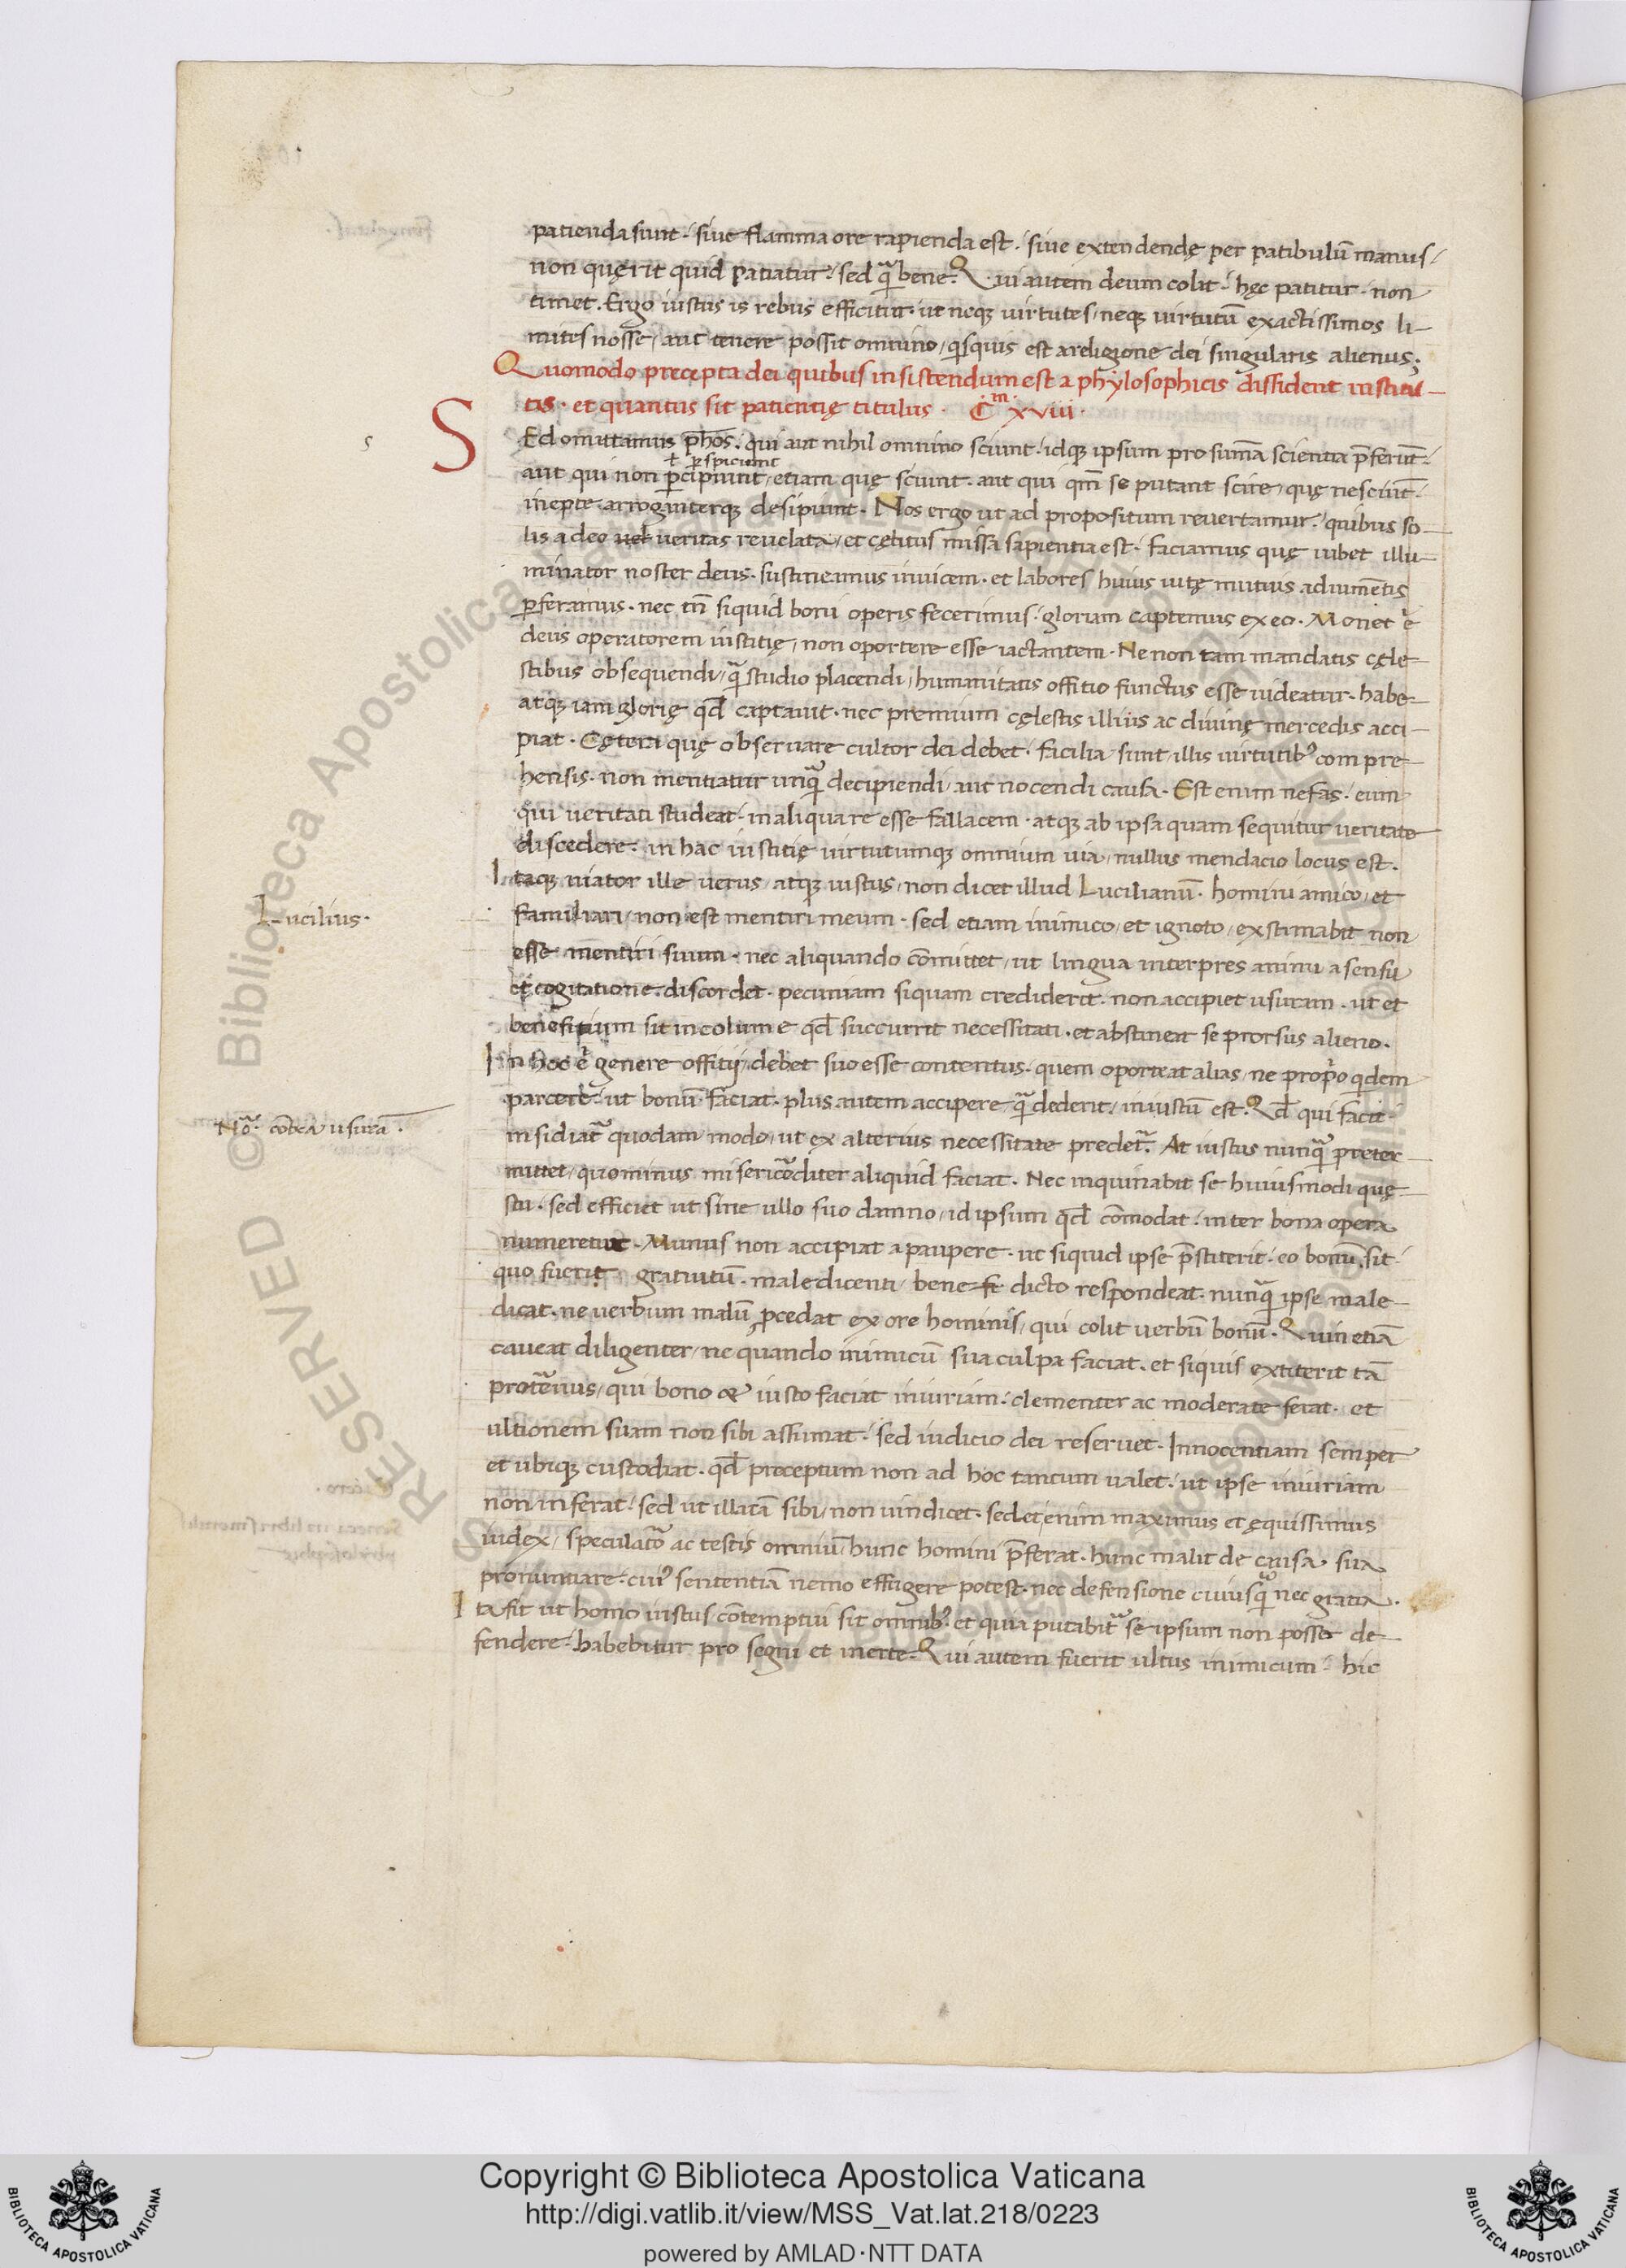 patienda sunt. siue flamma ore rapienda est. siue extendendę per patibulū manus.
non quęrit quid patiatur. sed q̃ bene. Qui autem deum colit. hęc patitur. non
timet. Ergo iustus is rebus efficitur. ut neq; uirtutes, neq; uirtutū exactissimos li-
mites nosse, aut tenere possit omnino, qsquis est a religione dei singularis alienus.
Quomodo precepta dei quibus insistendum est a phylosophicis dissident institu-
tis. et quantus sit patientię titulus. C.m xviii.
SEd omittamus ph̄os. qui aut nihil omnino sciunt. idq; ipsum pro sum̄a scientia p̄ferūt.
+ pspiciunt
aut qui non pcipiunt, etiam quę sciunt. aut qui qm̄ se putant scire, quę nesciūt.
inepte. arroganterq; desipiunt. Nos ergo ut ad propositum reuertamur. quibus so-
lis a deo uel ueritas reuelata, et cęlitus missa sapientia est. faciamus quę iubet illu-
minator noster deus. sustineamus inuicem. et labores huius uitę mutuis adiumētis
pferamus. nec tn̄ siquid boni operis fecerimus. gloriam captemus ex eo. Monet .e.
deus operatorem iustitię, non oportere esse iactantem. Ne non tam mandatis cęle-
stibus obsequendi, q̃ studio placendi, humanitatis offitio functus esse uideatur. habe-
atq; iam glorię qđ captauit. nec premium cęlestis illius ac diuinę mercedis acci-
piat. Cętera quę obseruare cultor dei debet. facilia sunt, illis uirtutib; compre-
hensis. non mentiatur unq̃ decipiendi, aut nocendi causa. Est enim nefas. eum
qui ueritati studeat. in aliqua re esse fallacem. atq; ab ipsa quam sequitur ueritate
discedere. in hac iustitię uirtutumq; omnium uia, nullus mendacio locus est.
Itaq; uiator ille uerus, atq; iustus, non dicet illud Lucilianū. homini amico, et
Lucilius.
familiari, non est mentiri meum. sed etiam inimico, et ignoto, existimabit non
esse mentiri suum. nec aliquando cōmittet, ut lingua interpres animi a sensu
et cogitatione. discordet. pecuniam siquam crediderit. non accipiet usuram. ut et
benefitium sit incolume qđ succurrit necessitati. et abstineat se prorsus alieno.
In hoc .e. genere offitii, debet suo esse contentus. quem oporteat alias, ne proprio qidem
parcere. ut bonū faciat. plus autem accipere, q̃ dederit, iniustū est. Qđ qui facit
Nō. contra usurā.
insidiatr quodam modo, ut ex alterius necessitate predetr. At iustus nunq̃ preter-
mittet, quominus misericorditer aliquid faciat. Nec inquinabit se huiusmodi quę-
stu. sed efficiet ut sine ullo suo damno, id ipsum qđ cōmodat. inter bona opera
numeretur. Munus non accipiat a paupere. ut siquid ipse p̄stiterit. eo bonū sit.
quo fuerit gratuitū. maledicenti, bene dicto respondeat. nunq̃ ipse male-
dicat. ne uerbum malū procedat ex ore hominis, qui colit uerbū bonū. Quin etiā
caueat diligenter, ne quando inimicū sua culpa faciat. et siquis extiterit tā
proteruus, qui bono & iusto faciat iniuriam. clementer ac moderate ferat. et
ultionem suam non sibi assumat. sed iudicio dei reseruet. Innocentiam semper
et ubiq; custodiat. qđ preceptum non ad hoc tantum ualet. ut ipse iniuriam
non inferat. sed ut illatā sibi, non uindicet. sedet enim maximus et ęquissimus
iudex, speculator ac testis omniū, hunc homini p̄ferat. hunc malit de causa sua
pronuntiare. cui; sententiā nemo effugere potest. nec defensione cuiusq̃ nec gratia.
Ita fit ut homo iustus, cōtemptui sit omnib;. et quia putabitr se ipsum non posse de-
fendere. habebitur pro segni et inerte. Qui autem fuerit ultus inimicum. hic
Copyright © Biblioteca Apostolica Vaticana
http://digi.vatlib.it/view/MSS_Vat.lat.218/0223
powered by AMLAD·NTT DATA
BIBLIOTECA APOSTOLICA VATICANA
BIBLIOTECA APOSTOLICA VATICANA